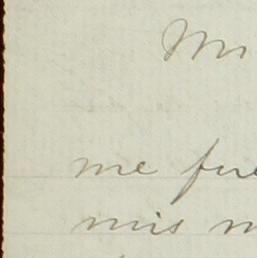 Mi
me fue
mis m